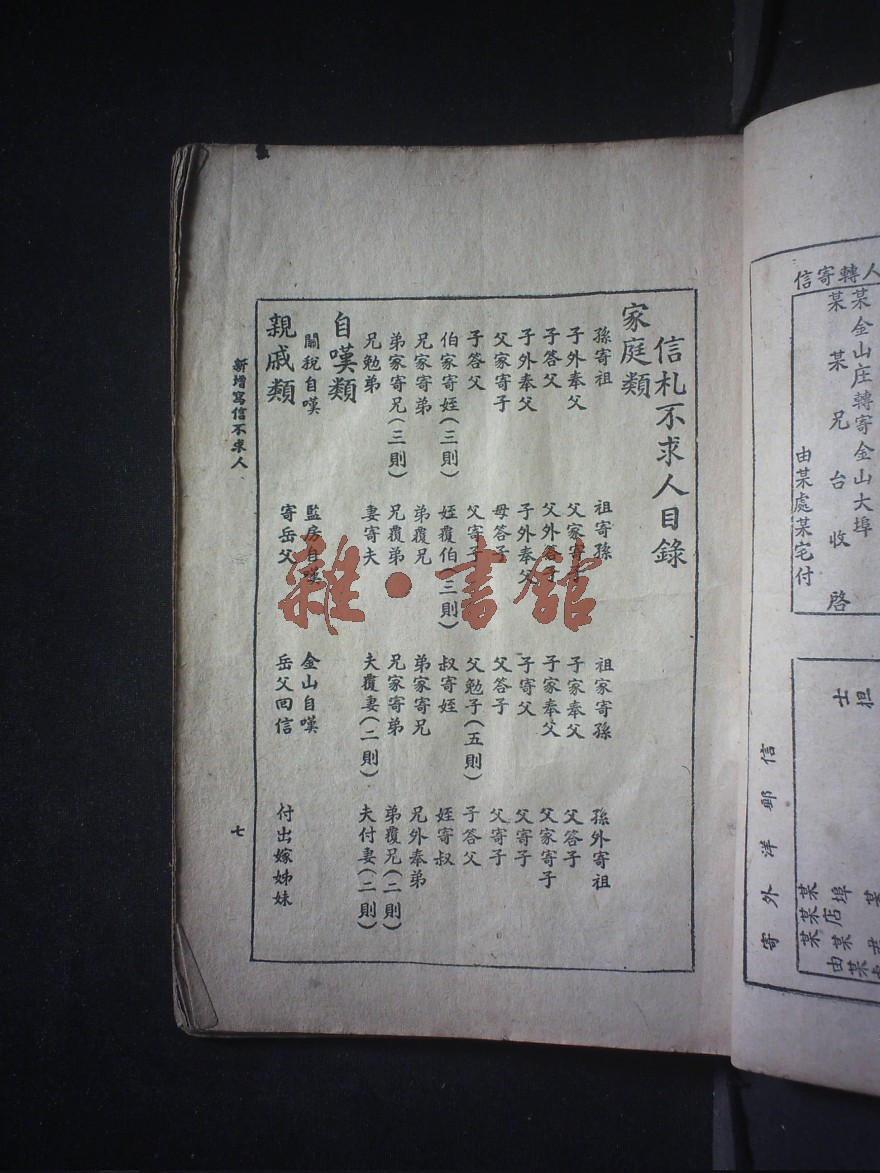 人轉寄信
某金山庄轉寄金山大埠
某某兄台收啓
由某處某宅付
士担
寄外洋郵信
信札不求人目錄
家庭類
孫寄祖 祖寄孫 祖家寄孫 孫外寄祖
子外奉父 父家寄子 子家奉父 父答子
子答父 父外答子 子家奉父 父家寄子
子外奉父 子外奉父 子寄父 父寄子
父家寄子 母答子 父答子 父寄子
子答父 父寄子 父勉子(五則) 子答父
伯家寄姪(三則) 姪覆伯(三則) 叔寄姪 姪寄叔
兄家寄弟 弟覆兄 弟家寄兄 兄外奉弟
弟家寄兄(三則) 兄覆弟 兄家寄弟 弟覆兄(二則)
兄勉弟 妻寄夫 夫覆妻(二則) 夫付妻(二則)
自嘆類
關稅自嘆 監房自嘆 金山自嘆
親戚類
寄岳父 岳父回信 付出嫁姊妹
新增寫信不求人 七
雜·書館